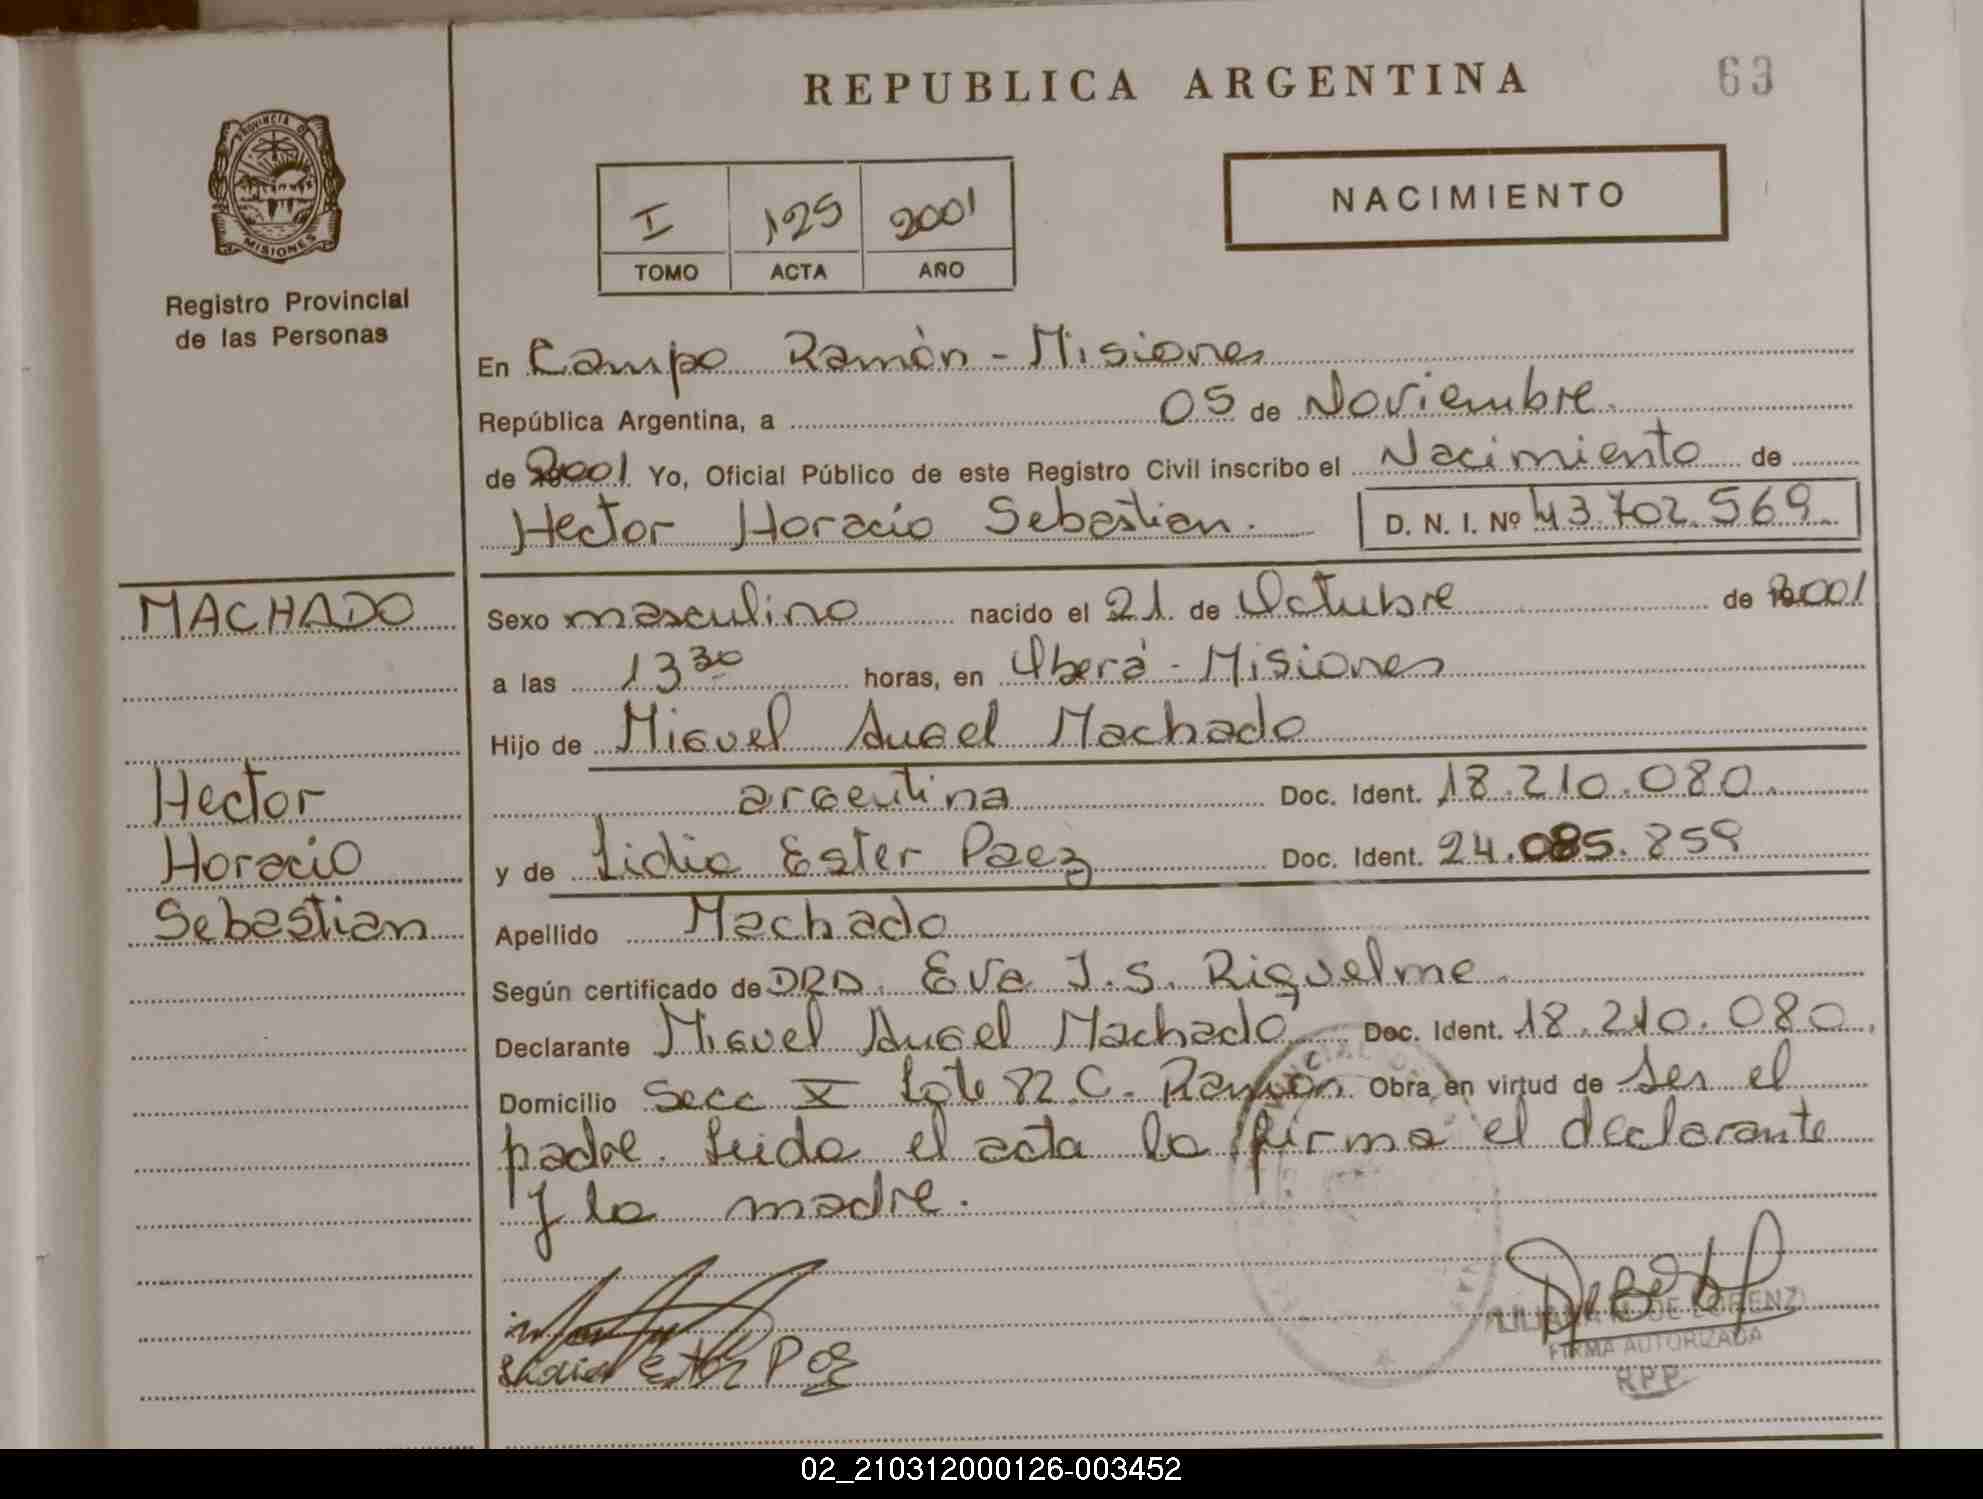 REPUBLICA ARGENTINA
63
PROVINCIA DE
MISIONES
Registro Provincial
de las Personas
I 125 2001
TOMO ACTA AÑO
NACIMIENTO
En Campo Ramón - Misiones
República Argentina, a 05 de Noviembre
de 2001 Yo, Oficial Público de este Registro Civil inscribo el Nacimiento de
Hector Horacio Sebastian. D. N. I. Nº 43.702.569
MACHADO
Sexo masculino nacido el 21 de Octubre de 2001
a las 13 30 horas, en Oberá - Misiones
Hijo de Miguel Angel Machado
Hector
argentina Doc. Ident. 18.210.080.
Horacio
y de Lidia Ester Paez Doc. Ident. 24.085.859
Sebastian
Apellido Machado
Según certificado de DRA. Eva J.S. Riquelme
Declarante Miguel Angel Machado Doc. Ident. 18.210.080.
Domicilio Secc X Lote 82 C. Ramón Obra en virtud de ser el
padre. Leida el acta la firma el declarante
y la madre.
Lidia Ester Paez
LILIANA M. DE LORENZI
FIRMA AUTORIZADA
RPP
02_210312000126-003452